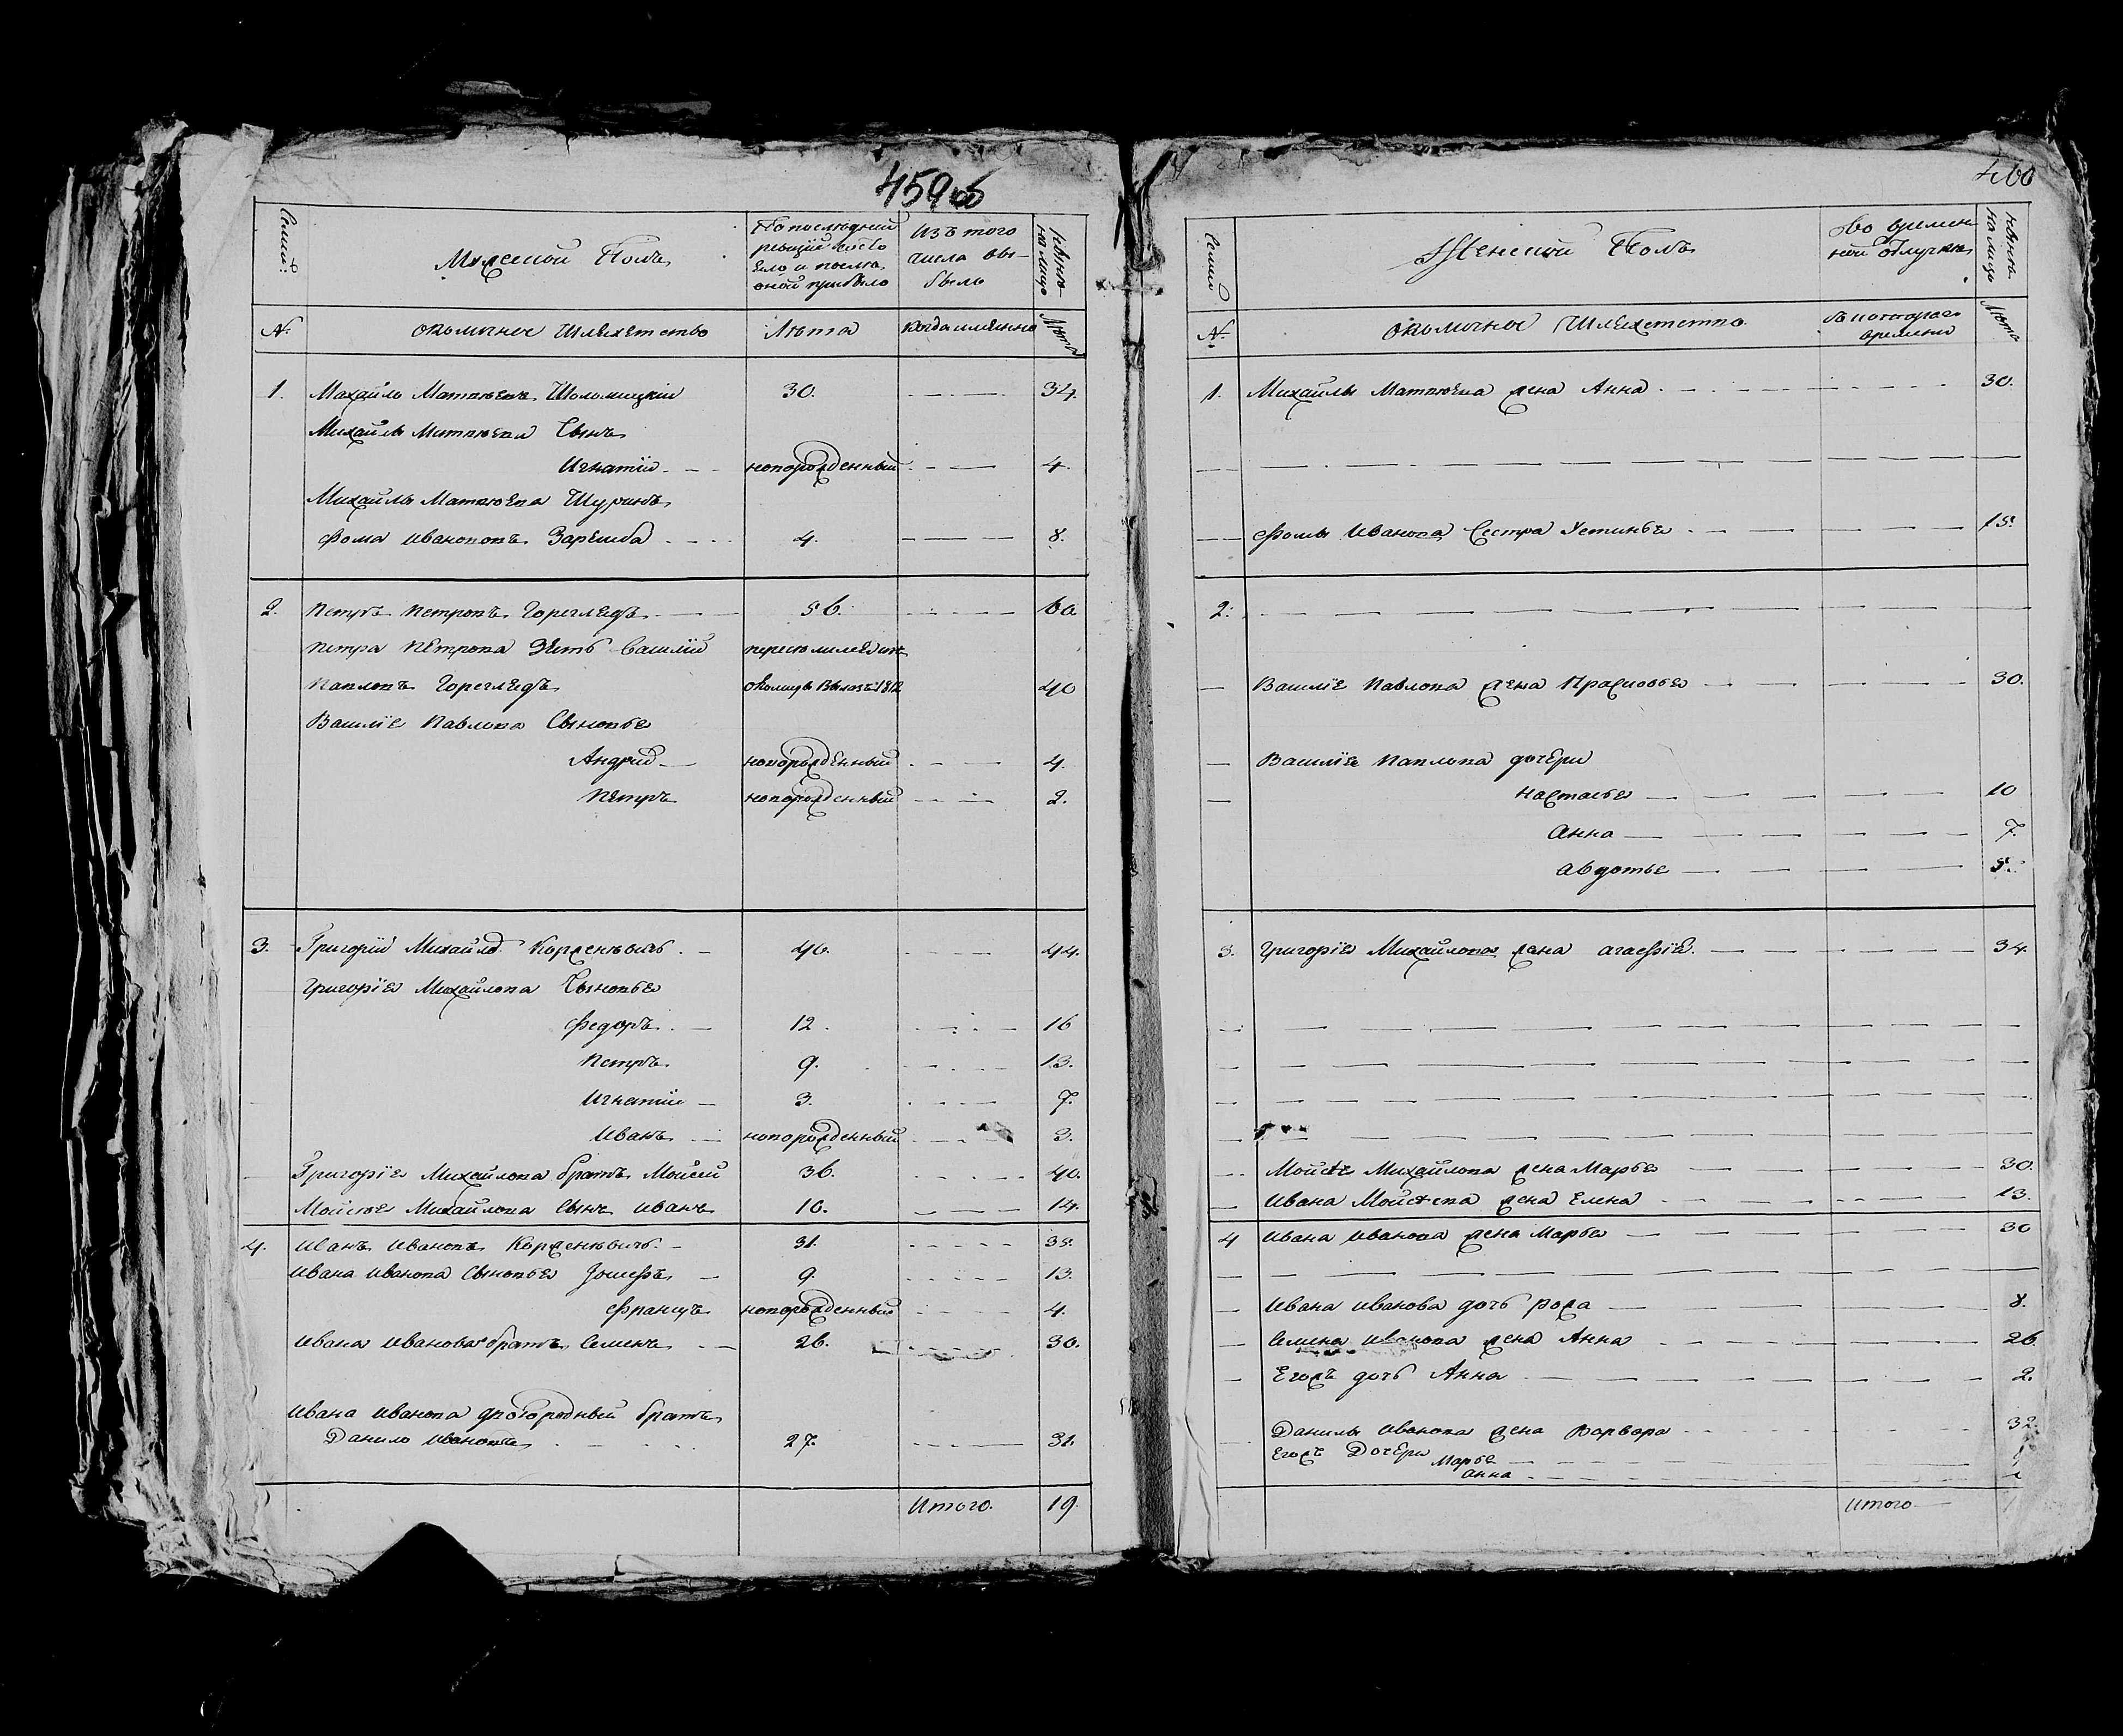 459об
Семьи
Мужеской Полъ
По последней
ревизии состо
яло и после
оной прибыло
Изъ того
числа вы-
было
Ныне
на лицо
№
околичное Шляхетство
Лета
когда именно
Лета
1. Михайло Матвеевъ Шоломицкий 30. 34.
Михайлы Матвеева Сынъ
Игнатий новорожденный 4.
Михайлы Матвеева Шуринъ
Фома Ивановъ Заремба 4. 8.
2. Петръ Петровъ Гореглядъ 56. 60
Петра Петрова Зять Василий
Павловъ Гореглядъ 1812 40
Василие Павлова Сыновье
Андрей новорожденный 4.
Петръ новорожденный 2.
3. Григорий Михайло Корженевичъ 40. 44.
Григорие Михайлова Сыновье
Федоръ 12. 16
Петръ 9. 13.
Игнатий 3. 7.
Иванъ новорожденный 3.
Григорие Михайлова братъ Мойсей 36. 40.
Мойсее Михайлова Сынъ Иванъ 10. 14.
4. Иванъ Ивановъ Корженевичъ 31. 35.
Ивана Иванова Сыновье Иосифъ 9. 13.
Францъ новорожденный 4.
Ивана Иванова братъ Семенъ 26. 30.
Ивана Иванова двоюродный братъ
Данило Ивановъ 27. 31.
Итого. 19.
460
Семьи
Женской Полъ
Во времен
ной отлучке
Ныне
на лицо
№
околичное Шляхетство
съ котораго
времени
Лета
1. Михайлы Матвеева жена Анна 30.
Фомы Иванова Сестра Устинье 15.
2.
Василие Павлова жена Прасковье 30.
Василие Павлова дочери
Настасье 10
Анна 7.
Авдотье 5.
3. Григорие Михайлова жена Агафие 34.
Мойсее Михайлова жена Марье 30.
Ивана Мойсеева жена Елена 13.
4 Ивана Иванова жена Марье 30
Ивана Иванова дочь Рожа 8.
Семена Иванова жена Анна 26
Егожъ дочь Анна 2.
Данилы Иванова жена Варвара 32
Егожъ Дочери Марье
Анна
Итого